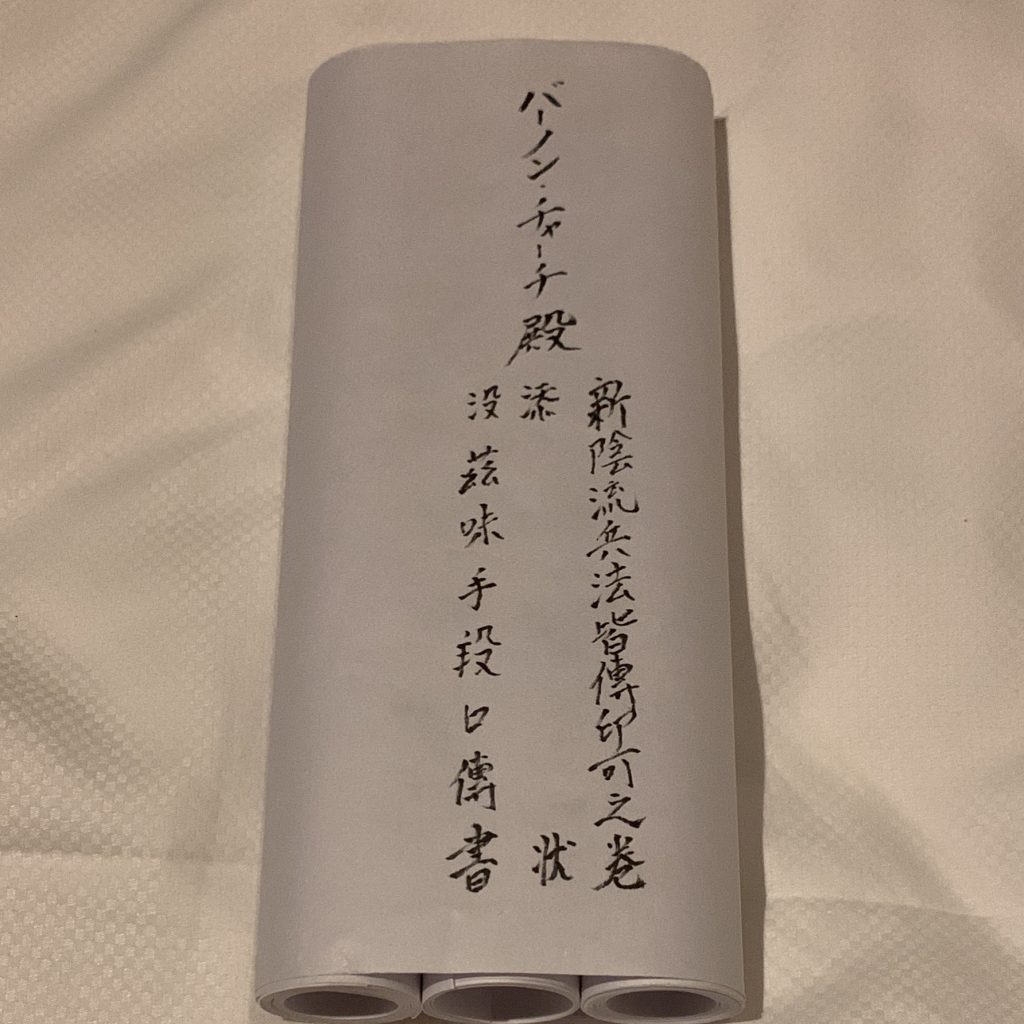 バーノン・チャーチ殿
新陰流兵法皆傳印可之巻
添状
没茲味手段口傳書